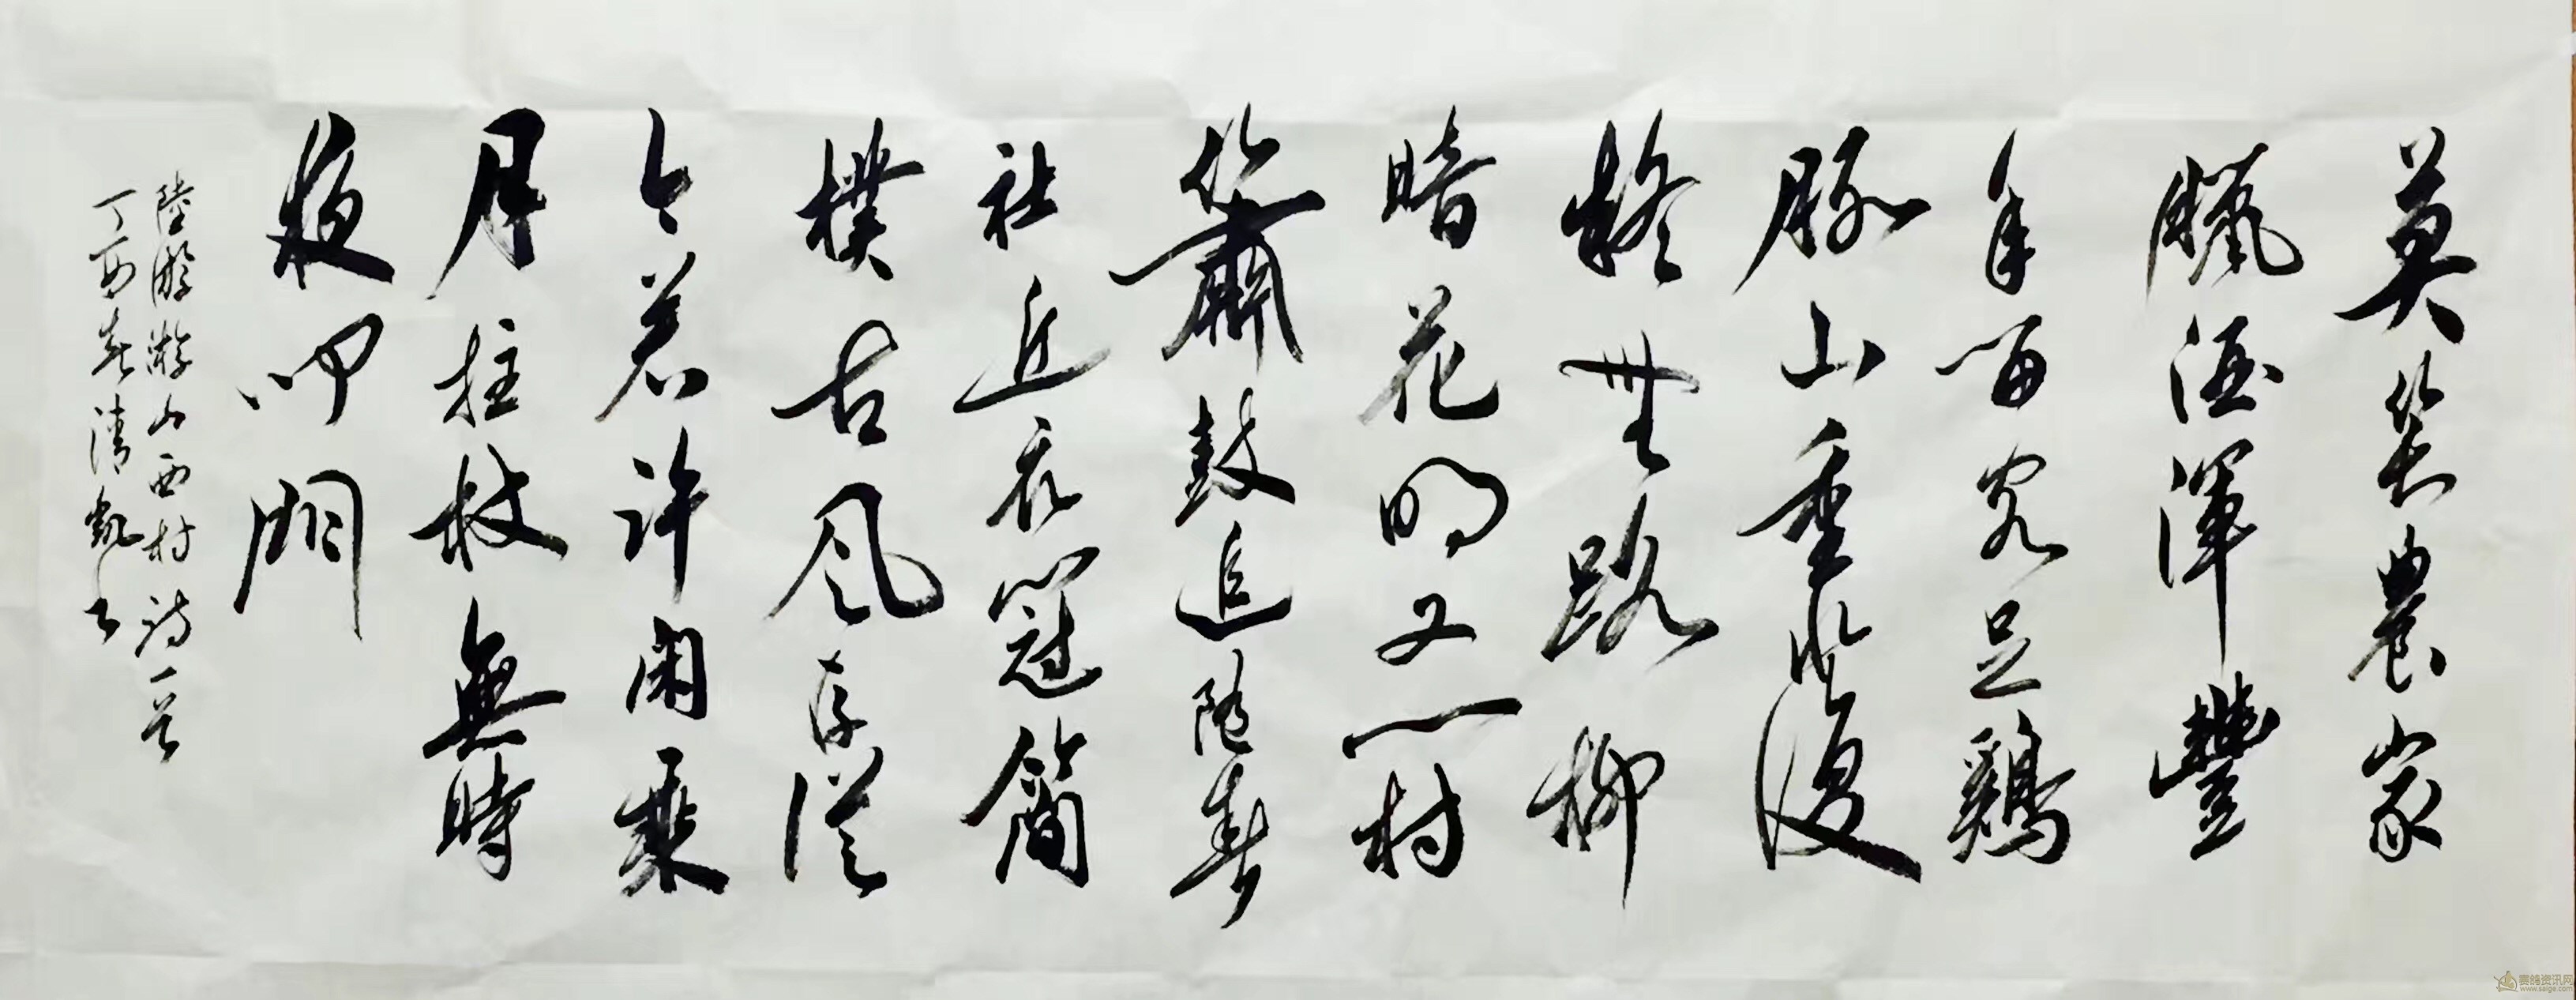 莫笑農家
臘酒渾豐
年留客足鷄
豚山重水複
疑無路柳
暗花明又一村
簫鼓追隨春
社近衣冠簡
樸古風存從
今若許閑乘
月拄杖無時
夜叩門
陸游游山西村詩一首
丁酉春清凱
赛鸽资讯网
www.saige.com